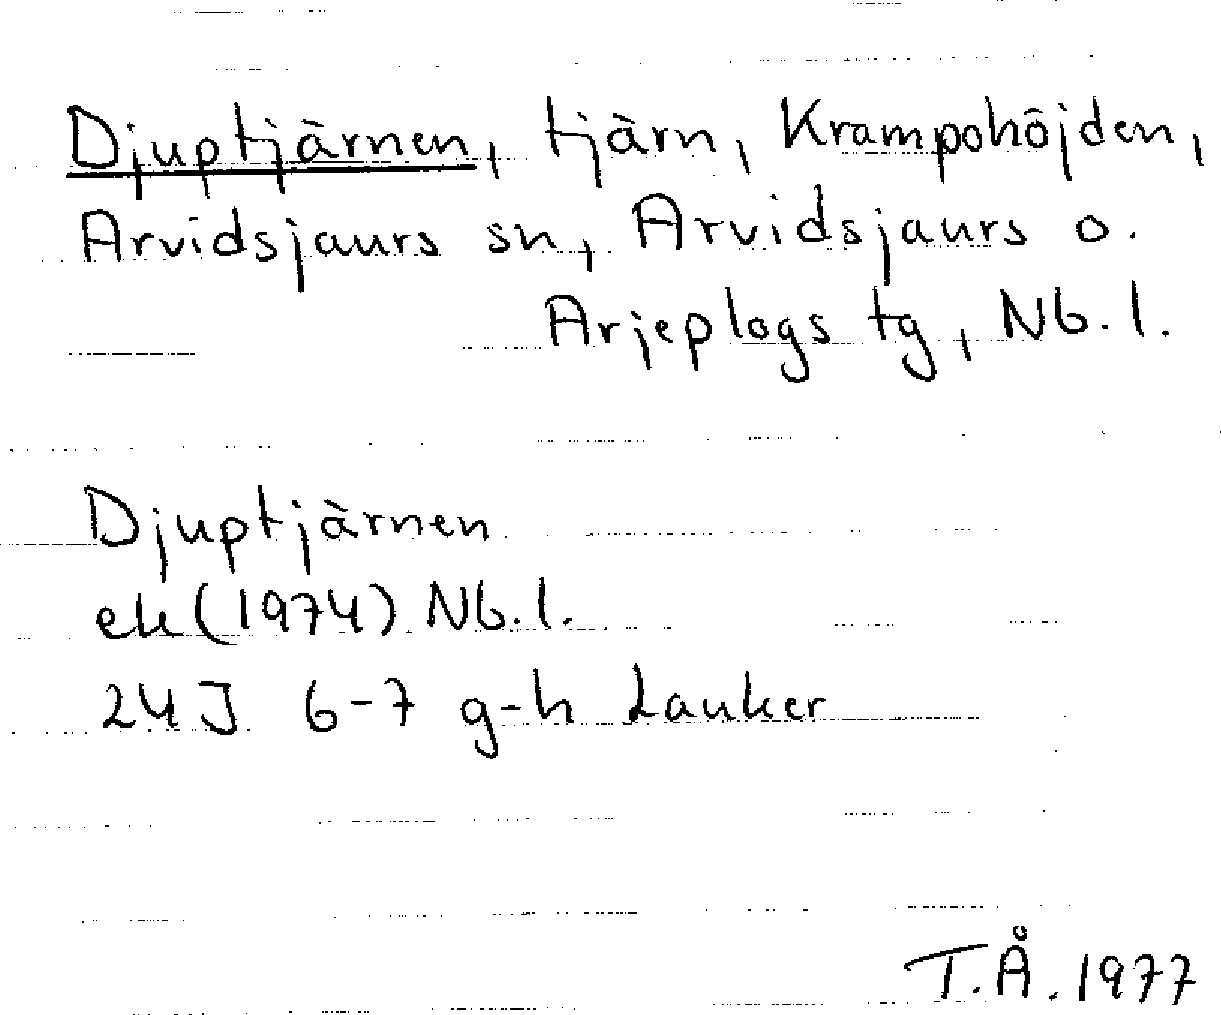 Djuptjärnen, tjärn, Krampohöjden,
Arvidsjaurs sn, Arvidsjaurs o.
Arjeplogs tg, Nb. l.
Djuptjärnen
ek (1974) Nb. l.
24J 6-7 g-h Lauker
T.Å. 1977